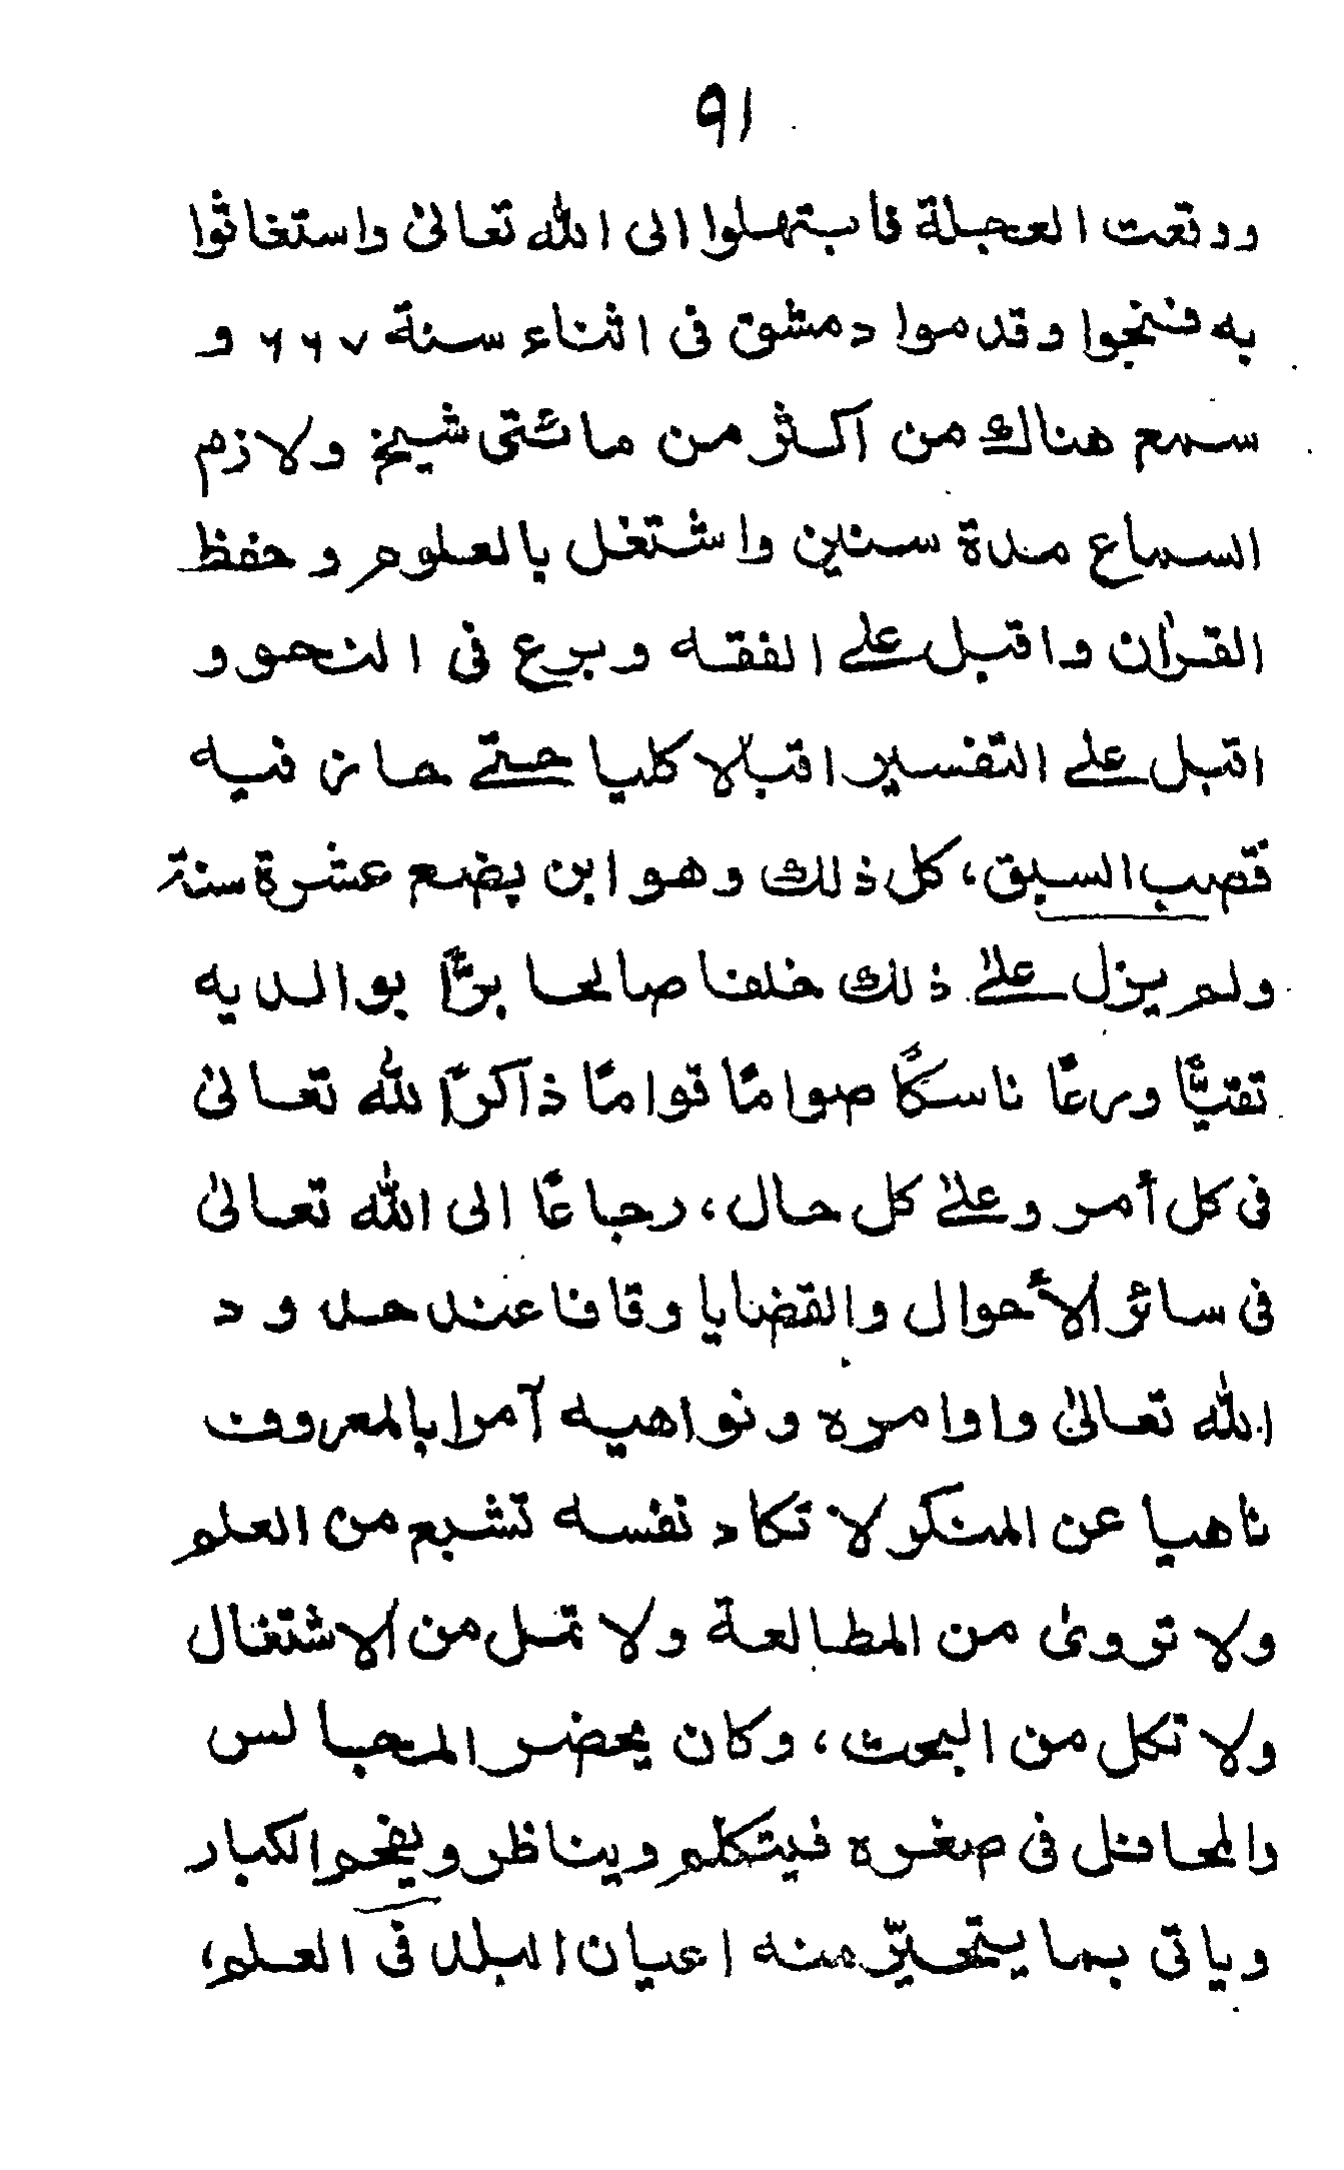 ٩١
ووقعت العجلة فابتهلوا الى الله تعالىٰ واستغاثوا
به فنجوا وقدموا دمشق فى اثناء سنة ٦٦٧ و
سمع هناك من اكثر من مائتى شيخ ولازم
السماع مدة سنين واشتغل بالعلوم وحفظ
القرٰان واقبل علے الفقه وبرع فى النحوو
اقبل علے التفسير اقبالا كليا حتے حاز فيه
قصب السبق، كل ذلك وهو ابن بضع عشرة سنة
ولم يزل علےٰ ذلك خلفا صالحا برًّا بوالديه
تقيًّا ورعًا ناسكًا صوامًا قوامًا ذاكرًا لله تعالىٰ
فى كل أمر وعلےٰ كل حال، رجاعًا الى الله تعالىٰ
فى سائر الأحوال والقضايا وقافا عند حدود
الله تعالىٰ واوامره ونواهيه آمرا بالمعروف
ناهيا عن المنكر لا تكاد نفسه تشبع من العلم
ولا تروىٰ من المطالعة ولا تمل من الاشتغال
ولا تكل من البحث، وكان يحضر المجالس
والمحافل فى صغره فيتكلم ويناظر ويفحم الكبار
وياتى بما يتحيّر منه اعيان البلد فى العلم،